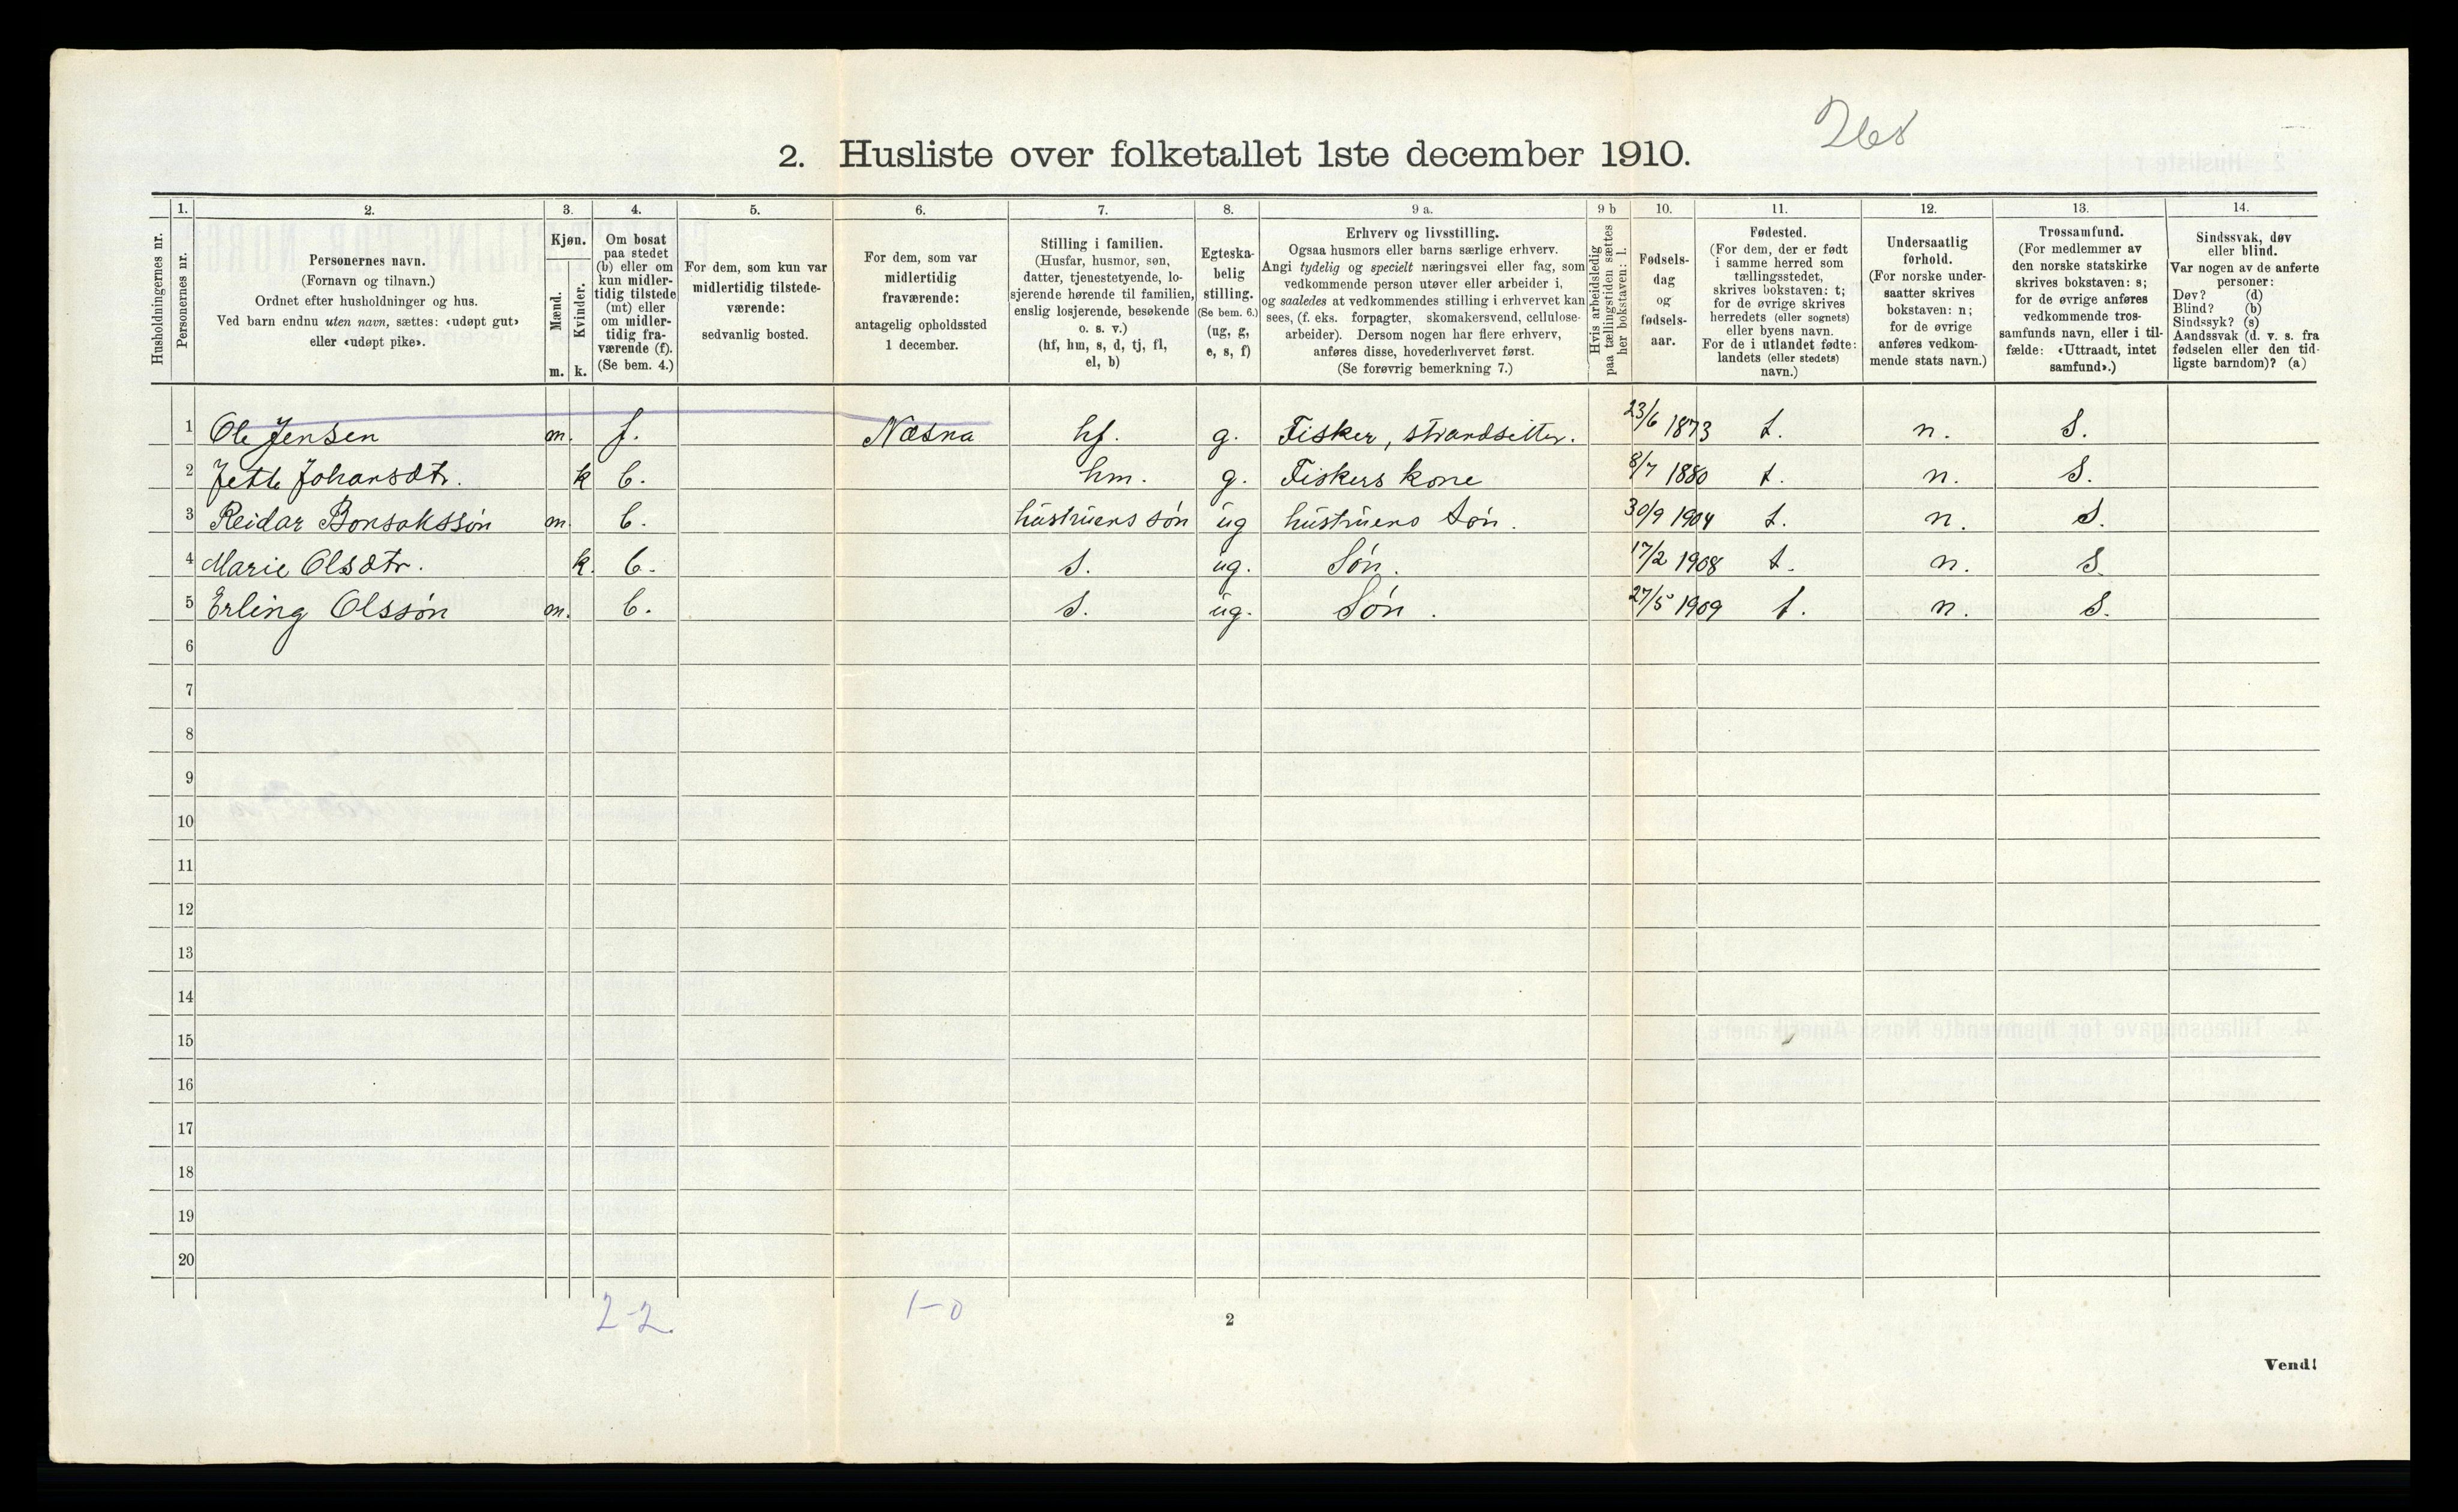 268
2. Husliste over folketallet 1ste december 1910.
Husholdningernes nr.
1. Personernes nr.
2. Personernes navn.
(Fornavn og tilnavn.)
Ordnet efter husholdninger og hus.
Ved barn endnu uten navn, sættes: «udøpt gut»
eller «udøpt pike».
3. Kjøn.
Mænd. m.
Kvinder. k.
4. Om bosat
paa stedet
(b) eller om
kun midler-
tidig tilstede
(mt) eller
om midler-
tidig fra-
værende (f).
(Se bem. 4.)
5. For dem, som kun var
midlertidig tilstede-
værende:
sedvanlig bosted.
6. For dem, som var
midlertidig
fraværende:
antagelig opholdssted
1 december.
7. Stilling i familien.
(Husfar, husmor, søn,
datter, tjenestetyende, lo-
sjerende hørende til familien,
enslig losjerende, besøkende
o. s. v.)
(hf, hm, s, d, tj, fl,
el, b)
8. Egteska-
belig
stilling.
(Se bem. 6.)
(ug, g,
e, s, f)
9 a. Erhverv og livsstilling.
Ogsaa husmors eller barns særlige erhverv.
Angi tydelig og specielt næringsvei eller fag, som
vedkommende person utøver eller arbeider i,
og saaledes at vedkommendes stilling i erhvervet kan
sees, (f. eks. forpagter, skomakersvend, cellulose-
arbeider). Dersom nogen har flere erhverv,
anføres disse, hovederhvervet først.
(Se forøvrig bemerkning 7.)
9 b Hvis arbeidsledig
paa tællingstiden sættes
her bokstaven: l.
10. Fødsels-
dag
og
fødsels-
aar.
11. Fødested.
(For dem, der er født
i samme herred som
tællingsstedet,
skrives bokstaven: t;
for de øvrige skrives
herredets (eller sognets)
eller byens navn.
For de i utlandet fødte:
landets (eller stedets)
navn.)
12. Undersaatlig
forhold.
(For norske under-
saatter skrives
bokstaven: n;
for de øvrige
anføres vedkom-
mende stats navn.)
13. Trossamfund.
(For medlemmer av
den norske statskirke
skrives bokstaven: s;
for de øvrige anføres
vedkommende tros-
samfunds navn, eller i til-
fælde: «Uttraadt, intet
samfund».)
14. Sindssvak, døv
eller blind.
Var nogen av de anførte
personer:
Døv? (d)
Blind? (b)
Sindssyk? (s)
Aandssvak (d. v. s. fra
fødselen eller den tid-
ligste barndom)? (a)
1 Ole Jensen m. f. Næsna hf. g. Fisker, strandsitter. 23/6 1873 t. n. S.
2 Jette Johansdtr. k b. hm. g. Fiskers kone 8/7 1880 t. n. S.
3 Reidar Bonsakssøn m. b. hustruens søn ug hustruens søn. 30/9 1904 t. n. S.
4 Marie Olsdtr. k. b. s. ug. Søn. 17/2 1908 t. n. S.
5 Erling Olssøn m. b. s. ug. Søn. 27/5 1909 t. n. S.
6
7
8
9
10
11
12
13
14
15
16
17
18
19
20
2-2. 1-0
2
Vend!